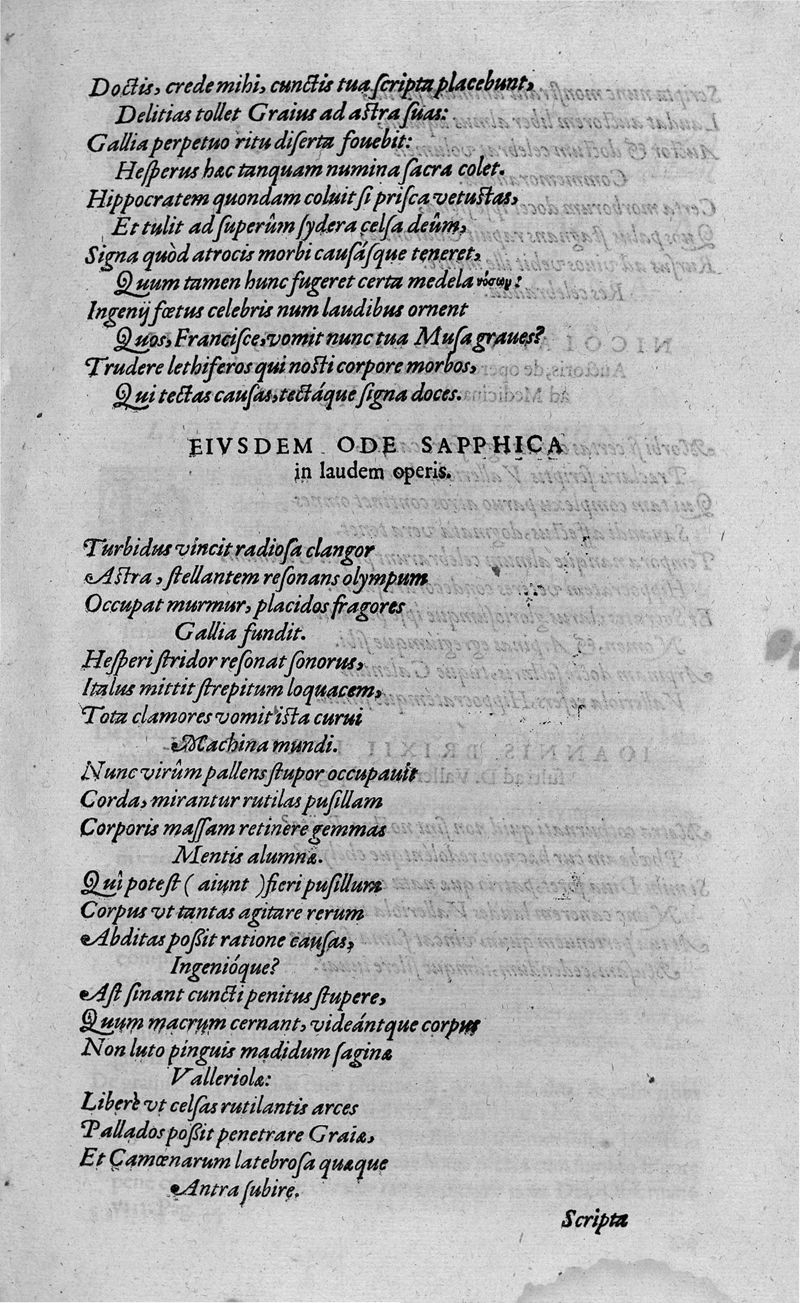 Doctis, crede mihi, cunctis tua ſcripta placebunt,
Delitias tollet Graius ad aſtra ſuas:
Gallia perpetuo ritu diſerta fouebit:
Heſperus hæc tanquam numina ſacra colet.
Hippocratem quondam coluit ſi priſca vetuſtas,
Et tulit ad ſuperûm ſydera celſa deûm,
Signa quòd atrocis morbi cauſáſque teneret,
Quum tamen hunc fugeret certa medela νόσων:
Ingenij fœtus celebris num laudibus ornent
Quos, Franciſce, vomit nunc tua Muſa graues?
Trudere lethiferos qui noſti corpore morbos,
Qui tectas cauſas, tectáque ſigna doces.
EIVSDEM ODE SAPPHICA
in laudem operis.
Turbidus vincit radioſa clangor
Aſtra, ſtellantem reſonans olympum
Occupat murmur, placidos fragores
Gallia fundit.
Heſperi ſtridor reſonat ſonorus,
Italus mittit ſtrepitum loquacem,
Tota clamores vomit iſta curui
Machina mundi.
Nunc virûm pallens ſtupor occupauit
Corda, mirantur rutilas puſillam
Corporis maſſam retinere gemmas
Mentis alumnæ.
Quî poteſt ( aiunt ) fieri puſillum
Corpus vt tantas agitare rerum
Abditas poßit ratione cauſas,
Ingenióque?
Aſt ſinant cuncti penitus ſtupere,
Quum macrum cernant, videántque corpus
Non luto pinguis madidum ſaginæ
Valleriolæ:
Liberè vt celſas rutilantis arces
Pallados poßit penetrare Graiæ,
Et Camœnarum latebroſa quæque
Antra ſubire.
Scripta